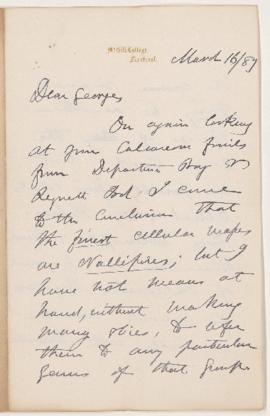 McGill College,
Montreal.
March 16/89
Dear George,
On again looking
at your Calcareous fossils
from Departure Bay &
I came
to the conclusion that
the finest cellular shapes
are Nullipores; but I
have not means at
hand, without making
many slices, to refer
them to any particular
genus of that group.